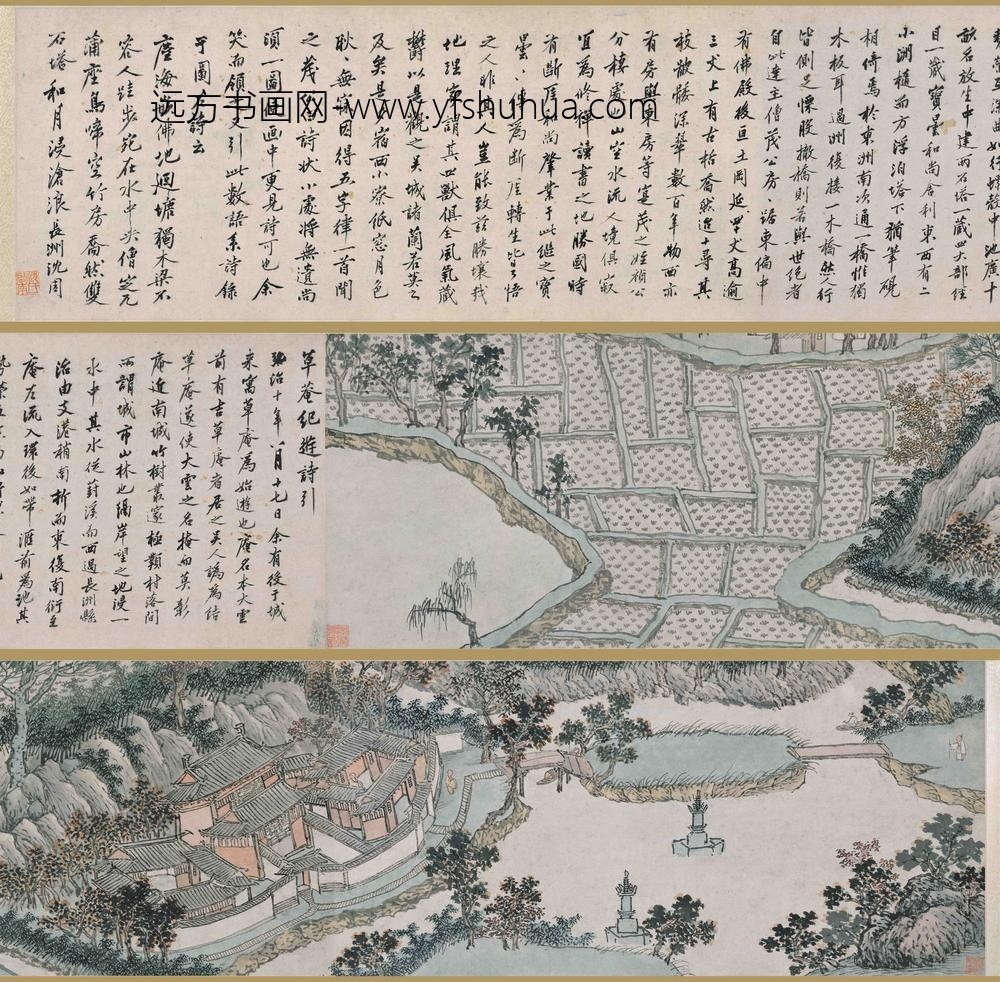 曲如行螺殼中池廣十
畝名放生中建兩石塔一藏四大部經
目一藏寶曇和尚舍利東西有二
小洲橢而方浮泊塔下猶筆硯
相倚焉於東洲南次通一橋惟獨
木板耳過洲復接一木橋然人行
皆側足慄股撤橋則若與世絕者
自此達主僧茂公房踞東偏中
有佛殿後亘土岡延四十丈高逾
三丈上有古栝喬然逾十尋其
枝數百年物西亦
有房與東房等寔茂之姪禎公
分棲處山空水流人境俱寂
宜為修禪讀書之地勝國時
有斷厓和尚肇業于此繼之寶
曇曇傳為斷厓轉生皆了悟
之人昨非人豈能致茲勝壤哉
地理家謂其四獸俱全風氣藏
鬱以是觀之吳城諸蘭若莫之
及矣是夕宿西小寮低窓月色
耿耿無寐因得五字律一首聞
之茂以詩狀小處將無遺尚
須一圖畫中更見詩可也余
笑而領之又引此數語系詩錄
于圖詩云
塵海佛地迴塘獨木梁不
容人跬步宛在水中央僧定兀
蒲座鳥啼空竹房喬然雙
石塔和月浸滄浪長洲沈周
远方书画网-www.yfshuhua.com
草菴紀遊詩引
弘治十年八月十七日余有役于城
來寓草庵為始遊也庵名本大雲
前有吉草庵者居之吴人訛為結
草庵遂使大雲之名掩而莫彰
庵近南城竹樹叢邃極類村落間
所謂城市山林也隔岸望之地浸一
水中其水從葑溪而西過長洲縣
治由支港稍南折而東復南衍至
庵左流入環後如帶滙前為池其